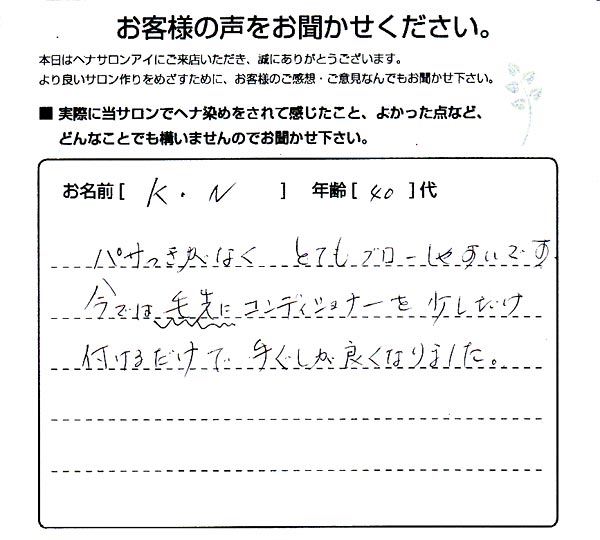 お客様の声をお聞かせください。
本日はヘナサロンアイにご来店いただき、誠にありがとうございます。
より良いサロン作りをめざすために、お客様のご感想・ご意見なんでもお聞かせ下さい。
■ 実際に当サロンでヘナ染めをされて感じたこと、よかった点など、
どんなことでも構いませんのでお聞かせ下さい。
お名前 [ K・N ] 年齢 [ 40 ] 代
パサつきがなく とてもブローしやすいです
今では毛先にコンディショナーを少しだけ
付けるだけで 手ぐしが良くなりました。